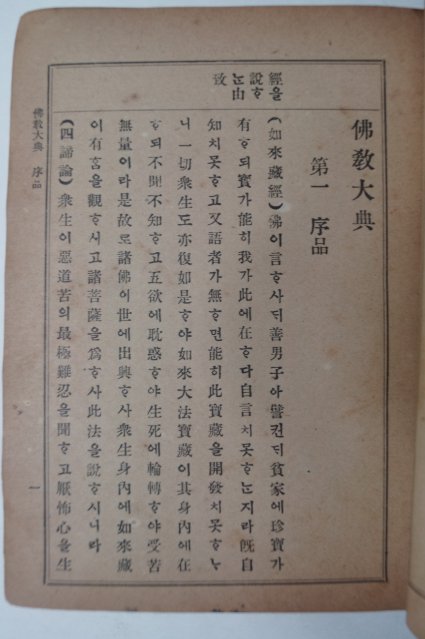 佛敎大典
第一 序品
經을
說ᄒᆞ
ᄂᆞᆫ由
致
(如來藏經)佛이言ᄒᆞ사ᄃᆡ善男子아譬컨ᄃᆡ貧家에珍寶가
有ᄒᆞ되寶가能히我가此에在ᄒᆞ다自言치못ᄒᆞᄂᆞᆫ지라旣自
知치못ᄒᆞ고又語者가無ᄒᆞ면能히此寶藏을開發치못ᄒᆞᄂᆞ
니一切衆生도亦復如是ᄒᆞ야如來大法寶藏이其身內에在
ᄒᆞ되不聞不知ᄒᆞ고五欲에耽惑ᄒᆞ야生死에輪轉ᄒᆞ야受苦
無量이라是故로諸佛이世에出興ᄒᆞ사衆生身內에如來藏
이有홈을觀ᄒᆞ시고諸菩薩을爲ᄒᆞ사此法을說ᄒᆞ시니라
(四諦論)衆生이惡道苦의最極難忍을聞ᄒᆞ고厭怖心을生
佛敎大典 序品
一